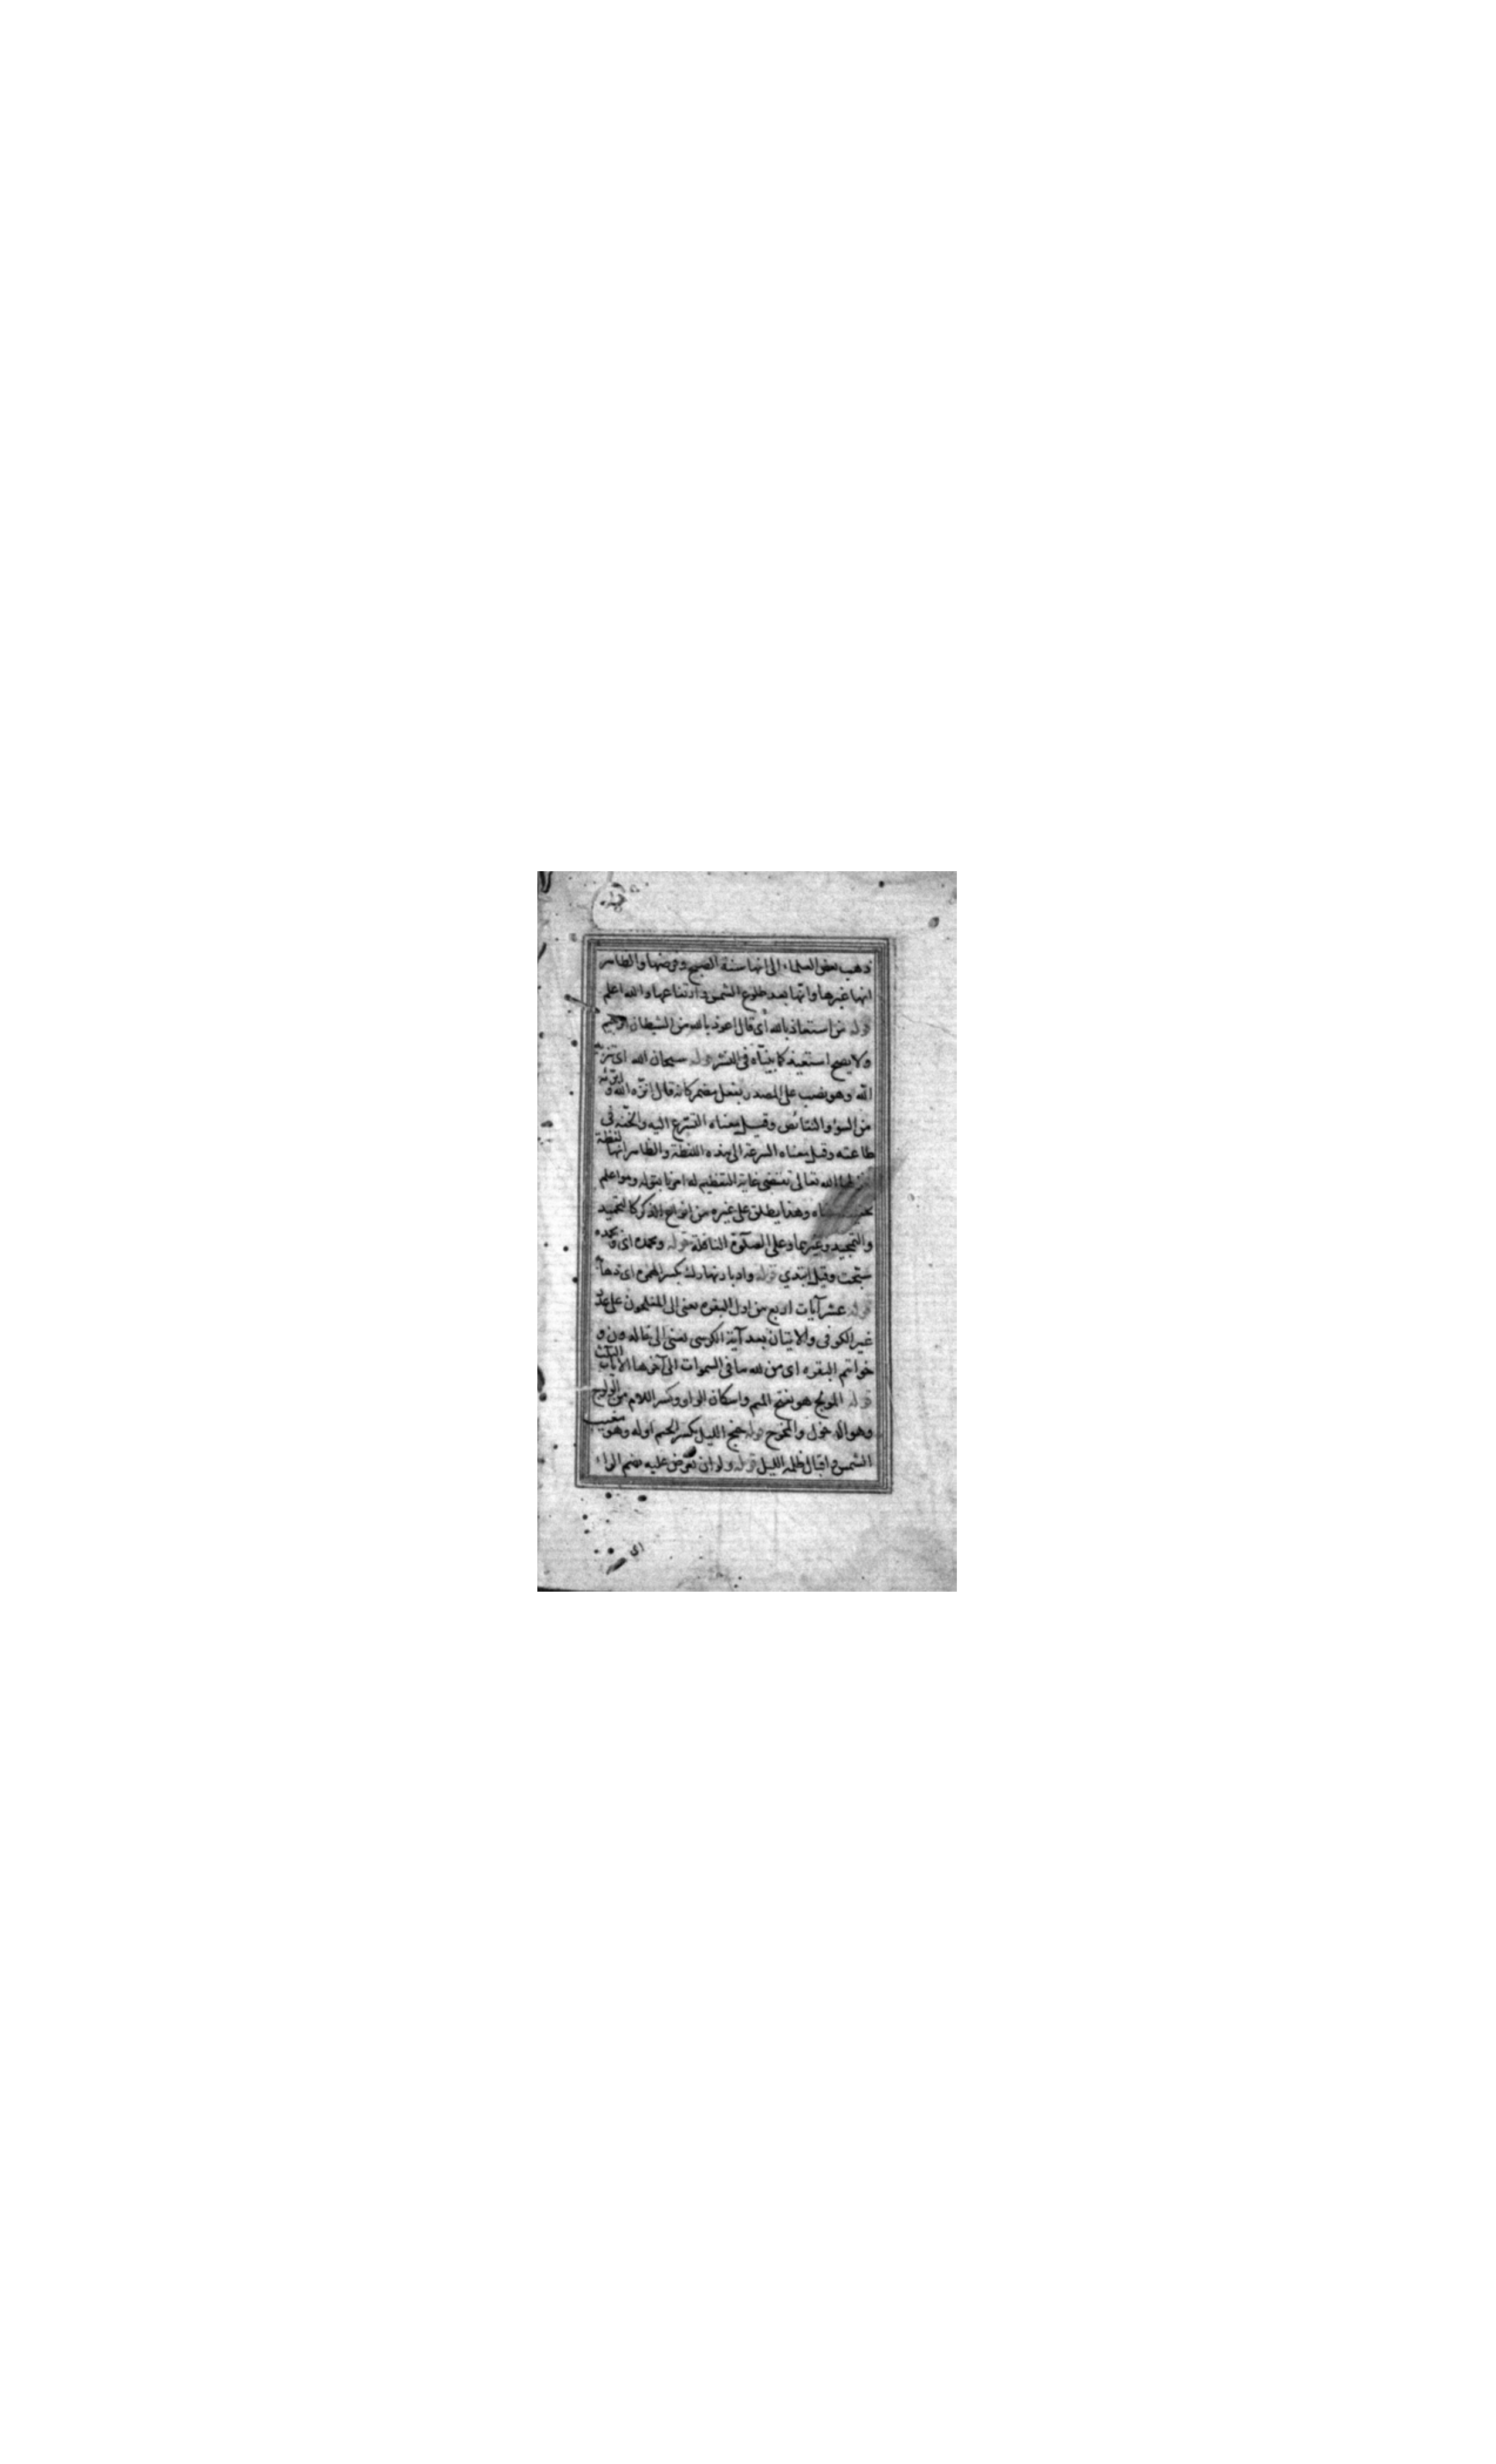 ذهب بعض العلماء الى انها سنة الصبح وفرضها والظاهر
انها غيرها وانها بعد طلوع الشمس وارتفاعها والله اعلم
قوله من استعاذ بالله أى قال اعوذ بالله من الشيطان الرجيم
ولا يصح استعيذ كما بيناه فى النشر قوله سبحان الله اى تنزيه
الله وهو نصب على المصدر بفعل مضمر كانه قال انزه الله و
من السوؤ والنقائص وقيل معناه التسرع اليه والخفة فى
طاعته وقيل معناه السرعة الى هذه اللفظة والظاهر انها لفظة
الله تعالى تقتضى غاية التعظيم له امرنا بقوله وهو اعلم
وهذا يطلق على غيره من انواع الذكر كالتحميد
والتمجيد وغيرهما وعلى الصلوة النافلة قوله وبحمده اى وبحمده
سبحت وقيل ابتدي قوله وادبار نهارك بكسر الهمزه اى ذهابه
قوله عشر آيات اربع من اول البقره يعنى الى المفلحون على عدد
غير الكوفى والايتان بعد آية الكرسى يعنى الى خالدون و
خواتم البقره اى من لله ما فى السموات الى آخرها الآيات الثلث
قوله المولج هو بفتح الميم واسكان الواو وكسر اللام من الولوج
وهو الدخول والمخرج قوله جنح الليل بكسر الجيم اوله وهو مغيب
الشمس و اقبال ظلمة الليل قوله ولو ان تعرض عليه بضم الراء
اى